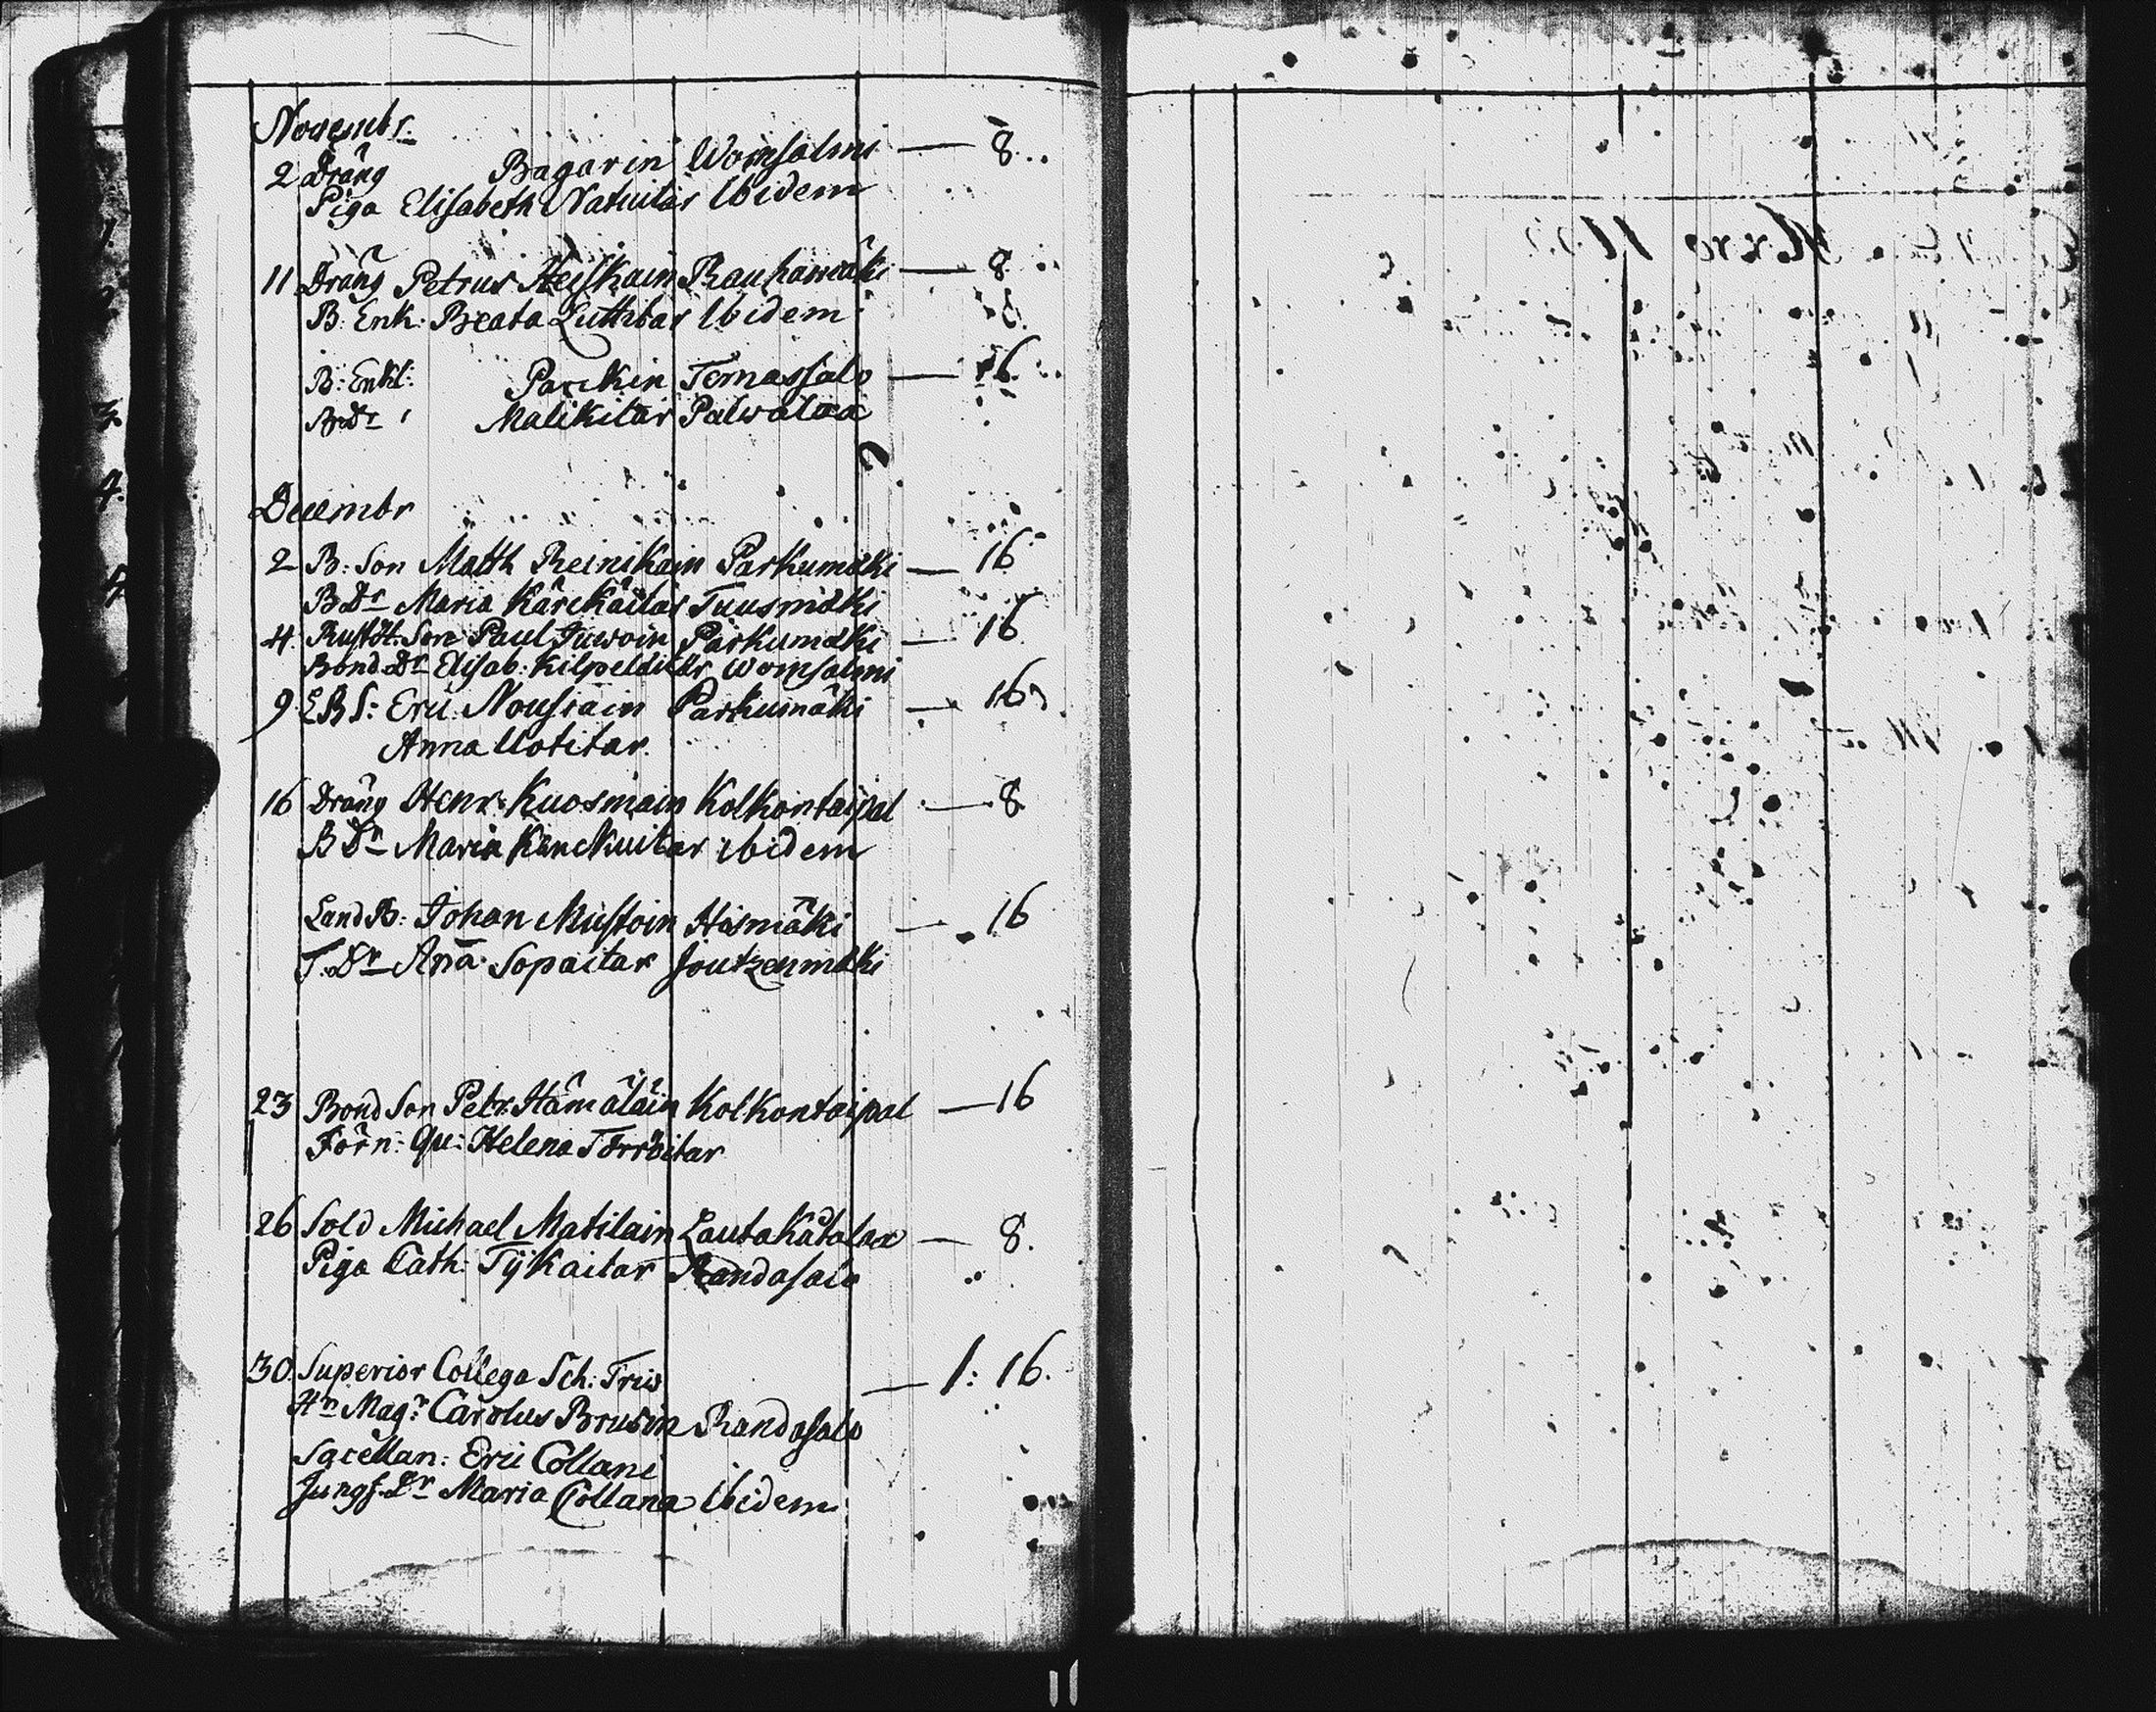 Novembr.
2 Dräng Bagarin Womsalmi — 8
Piga Elisabeth Natuitar Ibidem
11 Dräng Petrus Heiskain Rauhamäki — 8
B: Enk: Beata Luthitar Ibidem
B: Enkl: Parckin Tornassalo — 16
B Dr Malikitar Palwalax
Decembr
2 B: Son Matth Reinikain Parkumäki — 16
B Dr Maria Kärckäitar Tuusmäki
4. Rustht. Son Paul Juwoin Parkumäki — 16
Bond Dr Elisab: Kilpeläitär Womsalmi
9. L B S: Eric: Nousiain Parkumäki — 16
Anna Uotitar.
16 Dräng Henr: Kuosmain Kolkontaipal — 8
B Dr Maria Känckuitar ibidem
Land B: Johan Mustoin Hismäki — 16
T. Dr Ana: Sopaitar Joutzenmäki
23 Bond Son Petr: Hämäläin Kolkontaipal — 16
Förn: Qu: Helena Törröitar
26 Sold Michael Matilain Lautakatalax — 8.
Piga Cath: Tÿkaitar Randasalo
30. Superior Collega Sch: Triv — 1: 16.
Hn Magr Carolus Brusin Randasalo
Sacellan: Eric Collani
Jungf. Dr Maria Collana Ibidem
11